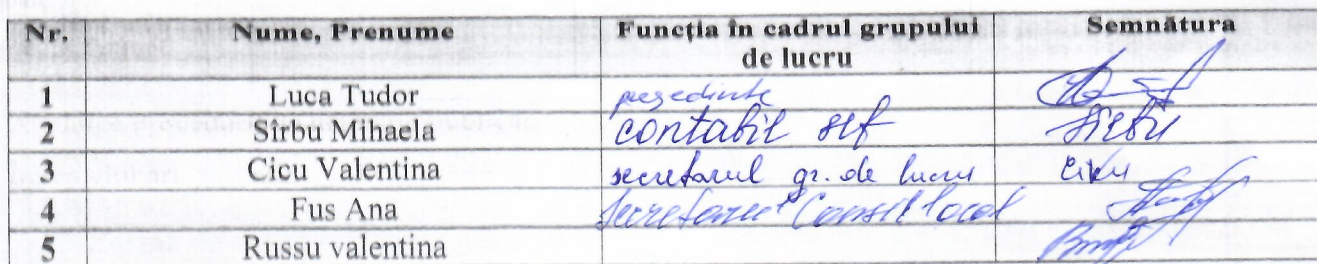 Nr. Nume, Prenume Funcția în cadrul grupului de lucru Semnătura
1 Luca Tudor președinte
2 Sîrbu Mihaela contabil șef Sîrbu
3 Cicu Valentina secretarul gr. de lucru Cicu
4 Fus Ana Secretarul Consil local
5 Russu valentina